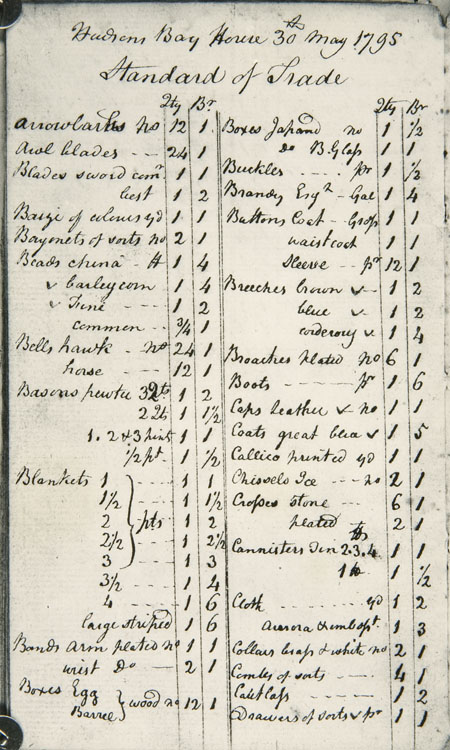 Hudsons Bay House 30th May 1795
Standard of Trade
Qty Br
arrowbarbs no 12 1
Awl blades 24 1
Blades sword comn 1 1
best 1 2
Baize of colours yd 1 1
Bayonets of sorts no 2 1
Beads china lb 1 4
barleycorn 1 4
1 2
common 3/4 1
Bells hawk no 24 1
horse 12 1
Basons pewter 3 Qts 1 2
2 Qts 1 1 1/2
1. 2 & 3 pint 1 1
1/2 pt 1 1/2
Blankets 1 1 1
1 1/2 1 1 1/2
2 pts 1 2
2 1/2 1 2 1/2
3 1 3
3 1/2 1 4
4 1 6
large striped 1 6
Bands arm plated no 1 1
wrist Do 2 1
Boxes Egg
Barrel } wood no 12 1
Qty Br
Boxes Japand no 1 1/2
do B. Glass 1 1
Buckles pr 1 1/2
Brandy Engh Gal 1 4
Buttons Coat Gross 1 1
waistcoat 1 1
sleeve pr 12 1
Breeches brown 1 2
blue 1 2
corderoy 1 4
Broaches plated no 6 1
Boots pr 1 6
Caps leather no 1 1
Coats great blue 1 5
Callico printed yd 1 1
Chissels Ice no 2 1
Crosses stone 6 1
plated 2 1
Cannisters Tin 2. 3. 4 lb 1 1
1 lb 1 1/2
Cloth yd 1 2
aurora & embosst 1 3
Collars brass & white no 2 1
Combs of sorts 4 1
1 2
Drawers of sorts pr 1 1